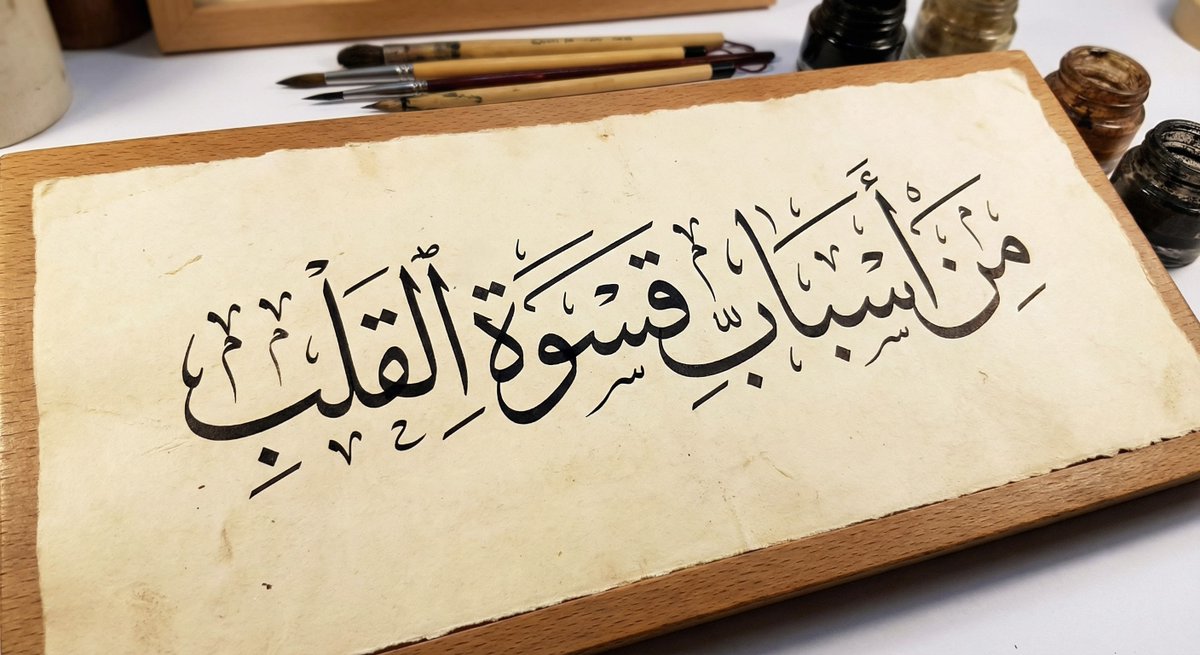 مِنْ أَسْبَابِ قَسْوَةِ ٱلْقَلْبِ